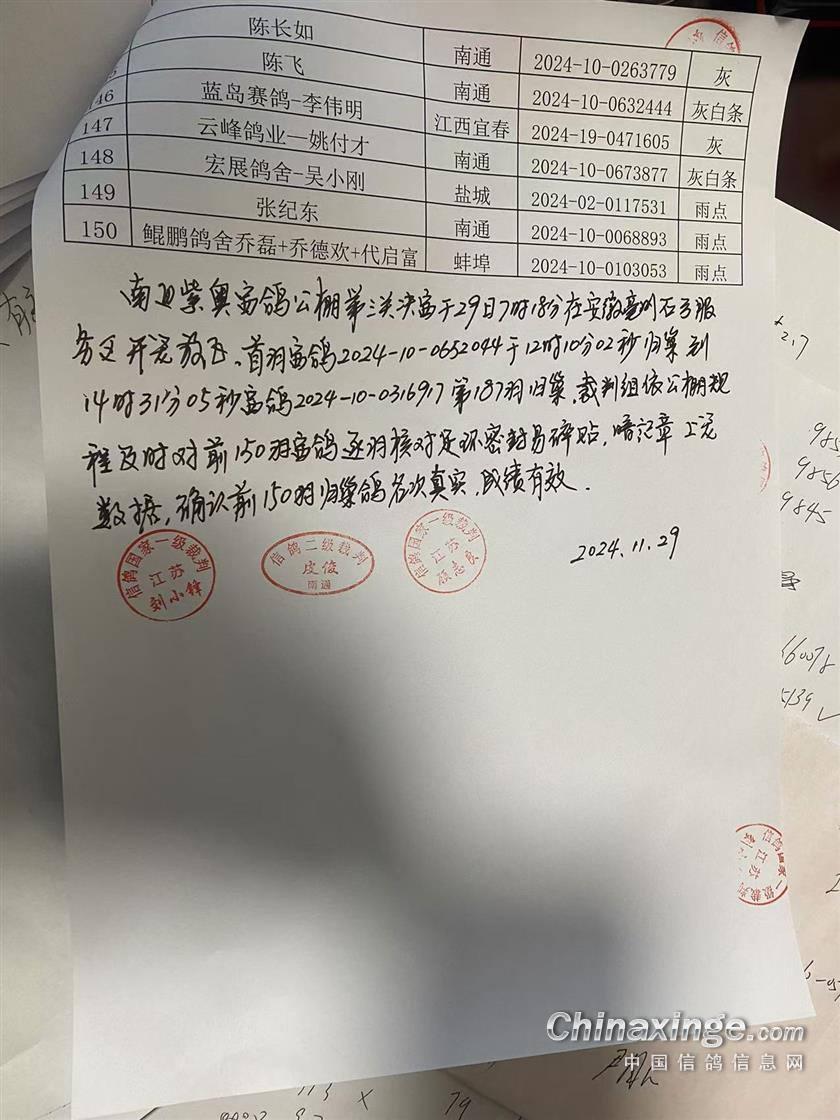 陈长如 南通 2024-10-0263779 灰
陈飞 南通 2024-10-0632444 灰白条
46 蓝岛赛鸽-李伟明 江西宜春 2024-19-0471605 灰
147 云峰鸽业—姚付才 南通 2024-10-0673877 灰白条
148 宏展鸽舍-吴小刚 盐城 2024-02-0117531 雨点
149 张纪东 南通 2024-10-0068893 雨点
150 鲲鹏鸽舍乔磊+乔德欢+代启富 蚌埠 2024-10-0103053 雨点
南通紫奥赛鸽公棚第三关决赛于29日7时18分在安徽亳州石弓服
务区开笼放飞、首羽赛鸽2024-10-0652044于12时10分02秒归巢到
14时31分05秒赛鸽2024-10-0316917第187羽归巢,裁判组依公棚规
程及时对前150羽赛鸽逐羽核对足环密封易碎贴,暗记章上笼
数据,确认前150羽归巢鸽名次真实,成绩有效.
2024.11.29
信鸽国家一级裁判
江苏
刘小锋
信鸽二级裁判
皮俊
南通
信鸽国家一级裁判
江苏
Chinaxinge.com
中国信鸽信息网